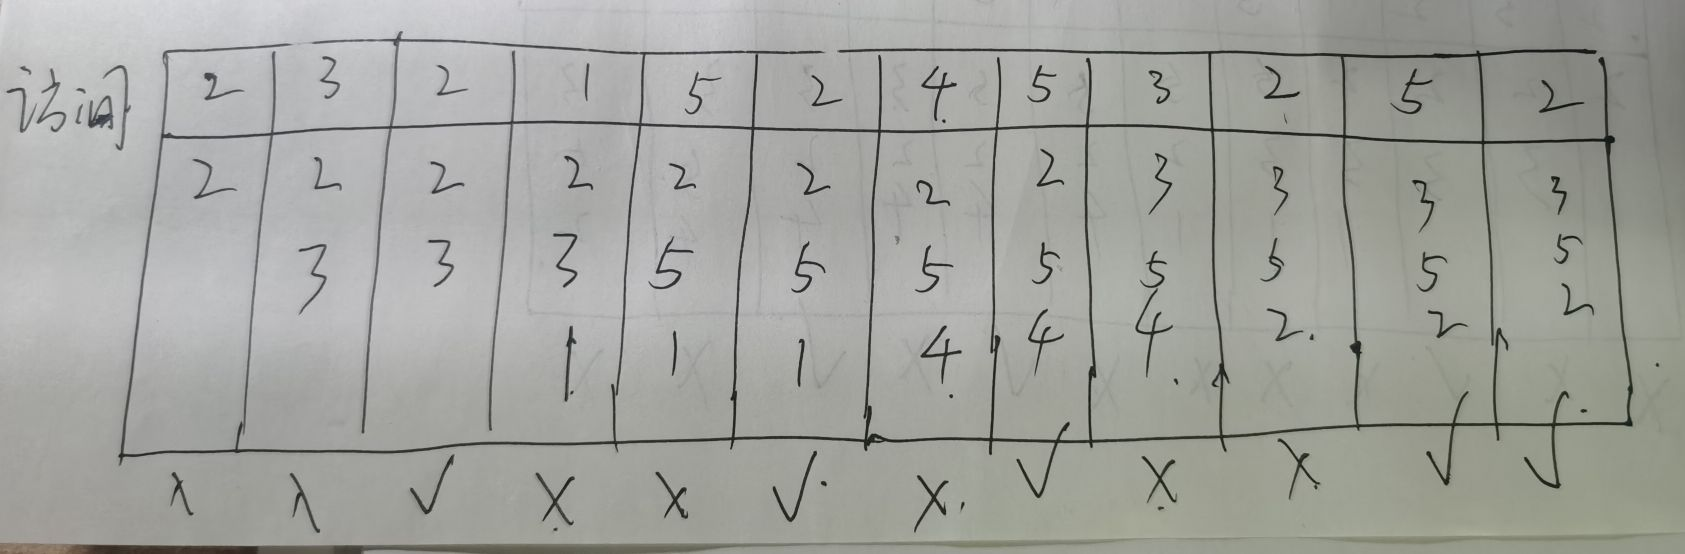 访问 2 3 2 1 5 2 4 5 3 2 5 2
2 2 2 2 2 2 2 2 3 3 3 3
3 3 3 5 5 5 5 5 5 5 5
1 1 1 4 4 4 2 2 2
X X √ X X √ X √ X X √ √